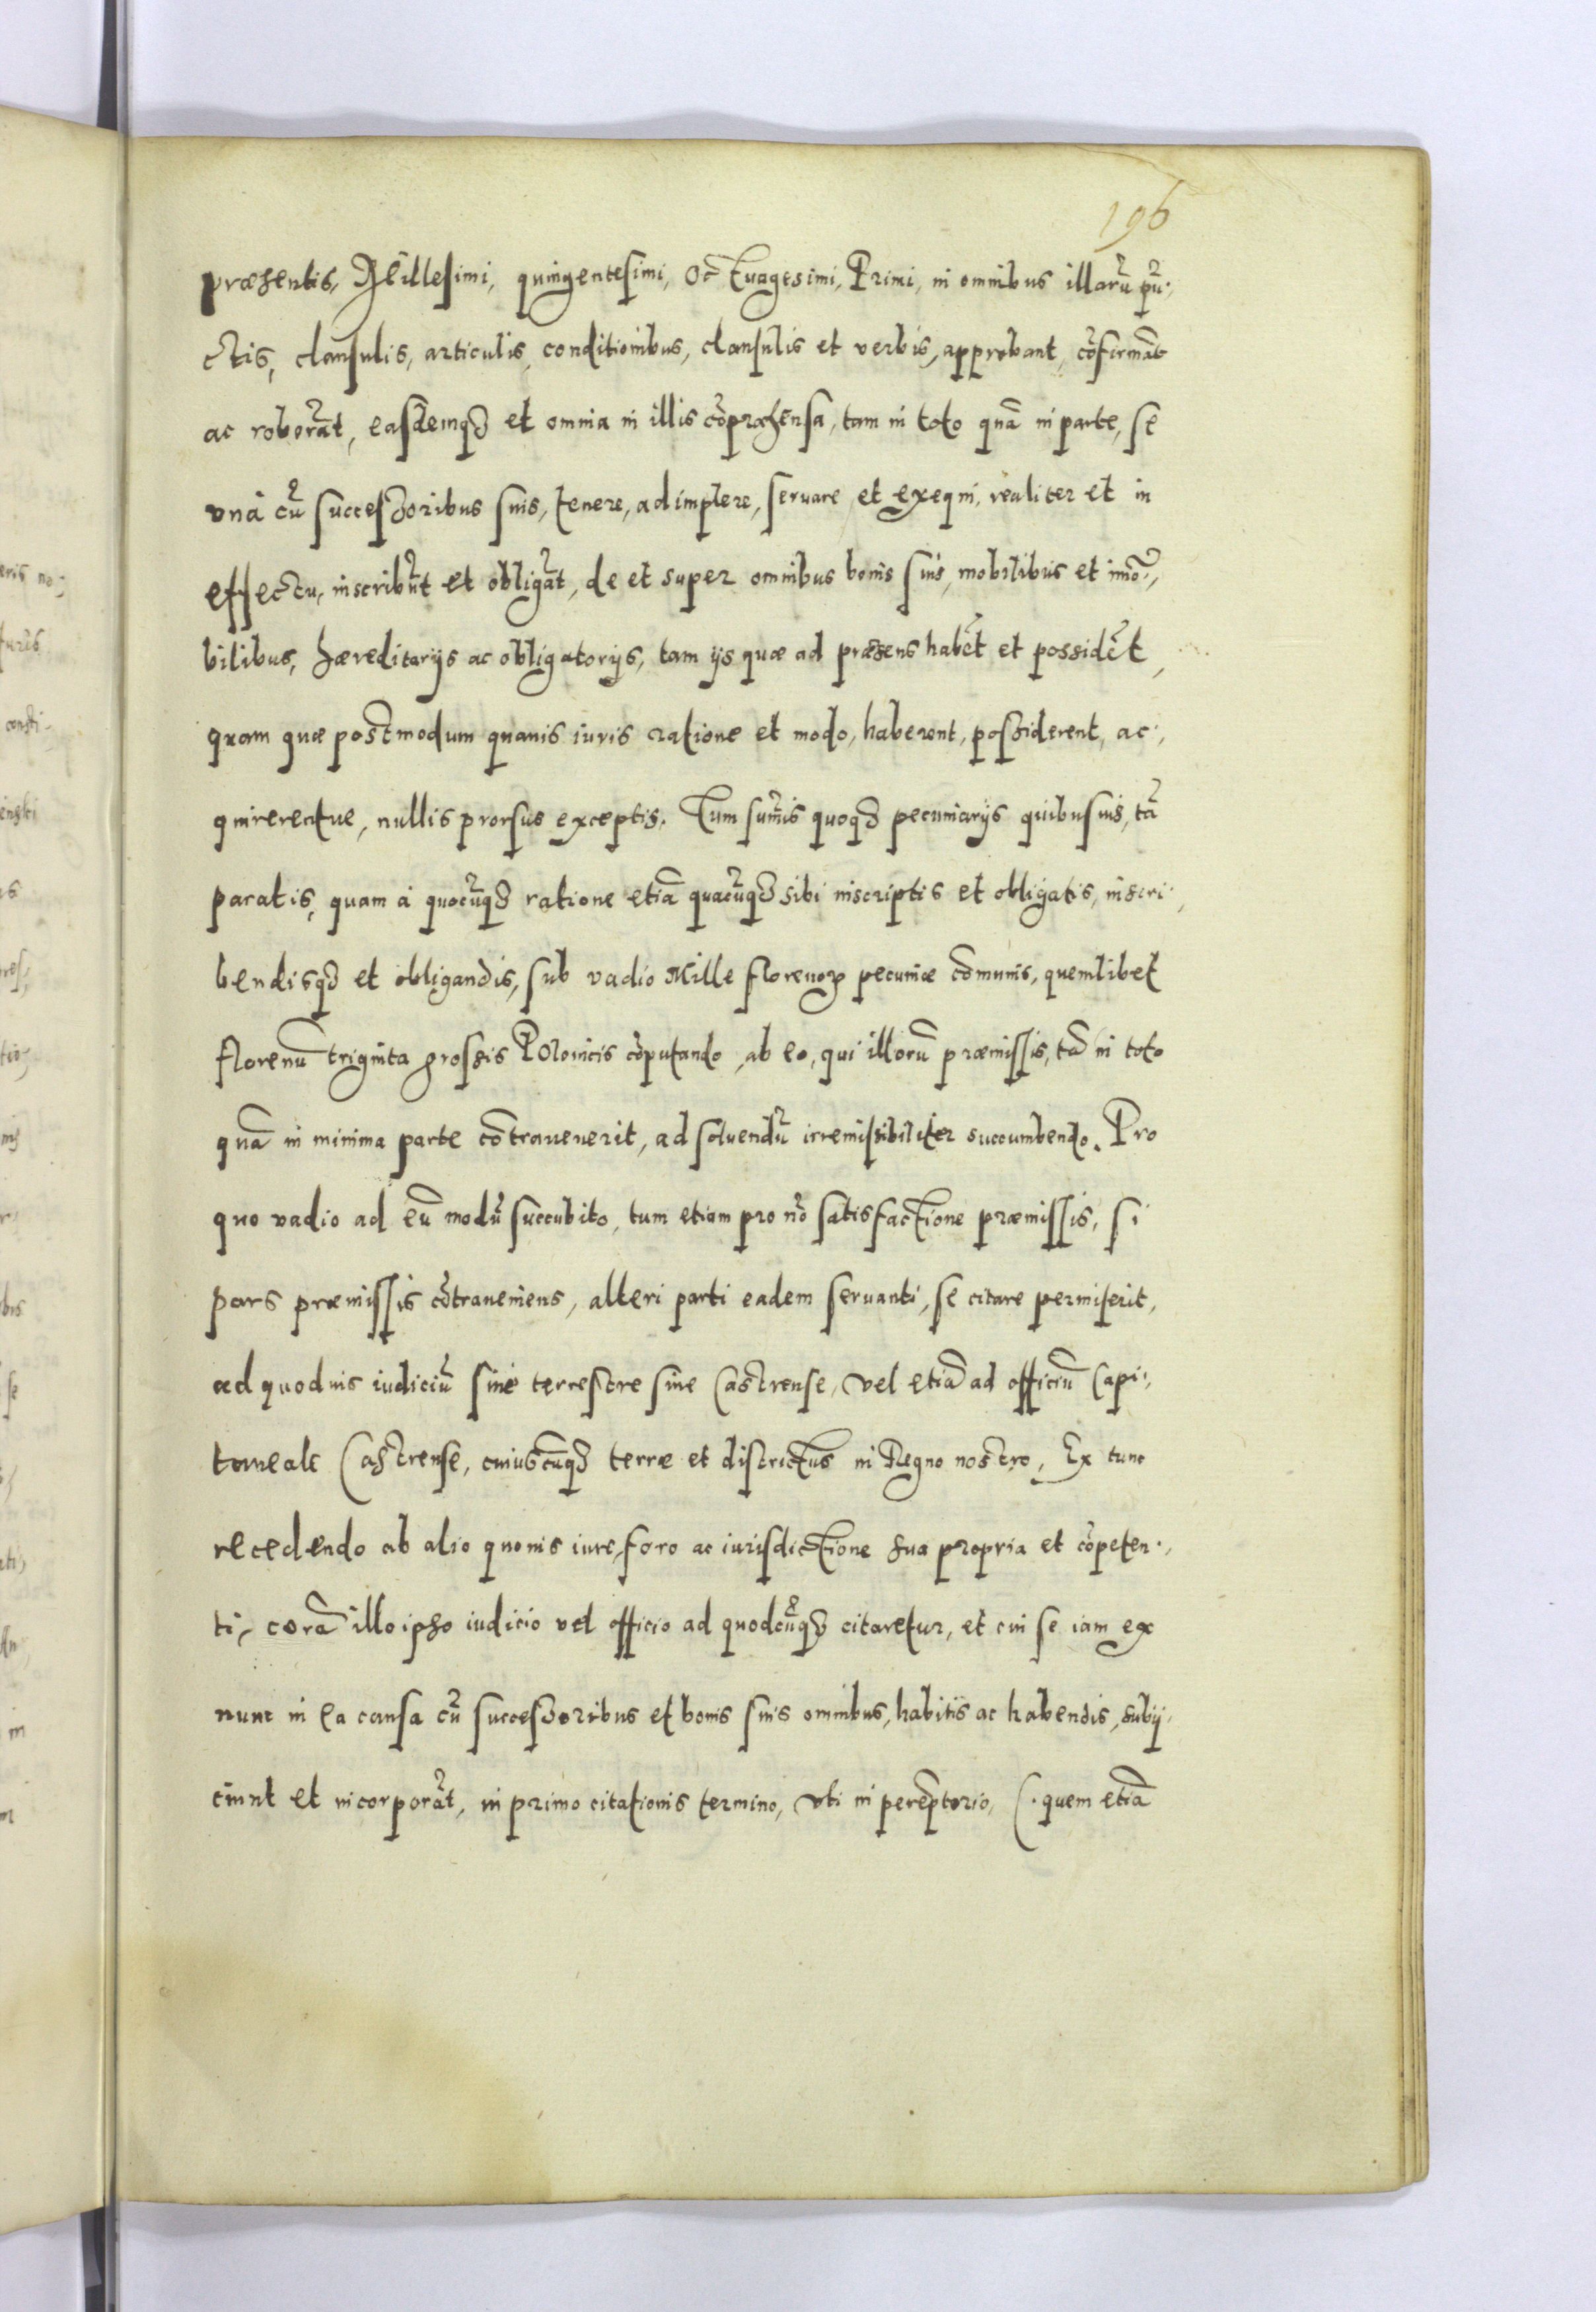 196
præsentis, Millesimi, quingentesimi, Octuagesimi, Primi, in omnibus illarũ pũ-
ctis, clausulis, articulis, conditionibus, clausulis et verbis, approbant, cõfirmãt
ac roborãt, easdemqȝ et omnia in illis cõpræhensa, tam in toto quã in parte, se
vnà cũ successoribus suis, tenere, adimplere, seruare et exequi, realiter et in
effectu, inscribũt et obligãt, de et super omnibus bonis suis, mobilibus et imo-
bilibus, hæreditarijs ac obligatorijs, tam ijs quæ ad præsens habẽt et possidẽt,
quam quæ postmodum quauis iuris ratione et modo, haberent, possiderent, ac-
quirerentue, nullis prorsus exceptis. Tum sum̃is quoqȝ pecuniarijs quibusuis, tã
paratis, quam à quocũqȝ ratione etiã quacũqȝ sibi inscriptis et obligatis, inscri-
bendisqȝ et obligandis, sub vadio Mille florenoꝝ pecuniæ cõmunis, quemlibet
florenũ triginta grossis Polonicis cõputando, ab eo, qui illorũ præmissis, tã in toto
quã in minima parte cõtrauenerit, ad soluendũ irremissibiliter succumbendo. Pro
quo vadio ad eũ modũ succubito, tum etiam pro nõ satisfactione præmissis, si
pars præmissis cõtraueniens, alteri parti eadem seruanti, se citare permiserit,
ad quoduis iudiciũ siue terrestre siue Castrense, vel etiã ad officiũ Capi-
taneale Castrense, cuiuscũqȝ terræ et districtus in Regno nostro, Ex tunc
recedendo ab alio quouis iure, foro ac iurisdictione sua propria et cõpeten-
ti, corã illo ipso iudicio vel officio ad quodcũqȝ citaretur, et cui se iam ex
nunc in ea causa cũ successoribus et bonis suis omnibus, habitis ac habendis, subij-
ciunt et incorporãt, in primo citationis termino, vti in perẽptorio, (. quem etiã